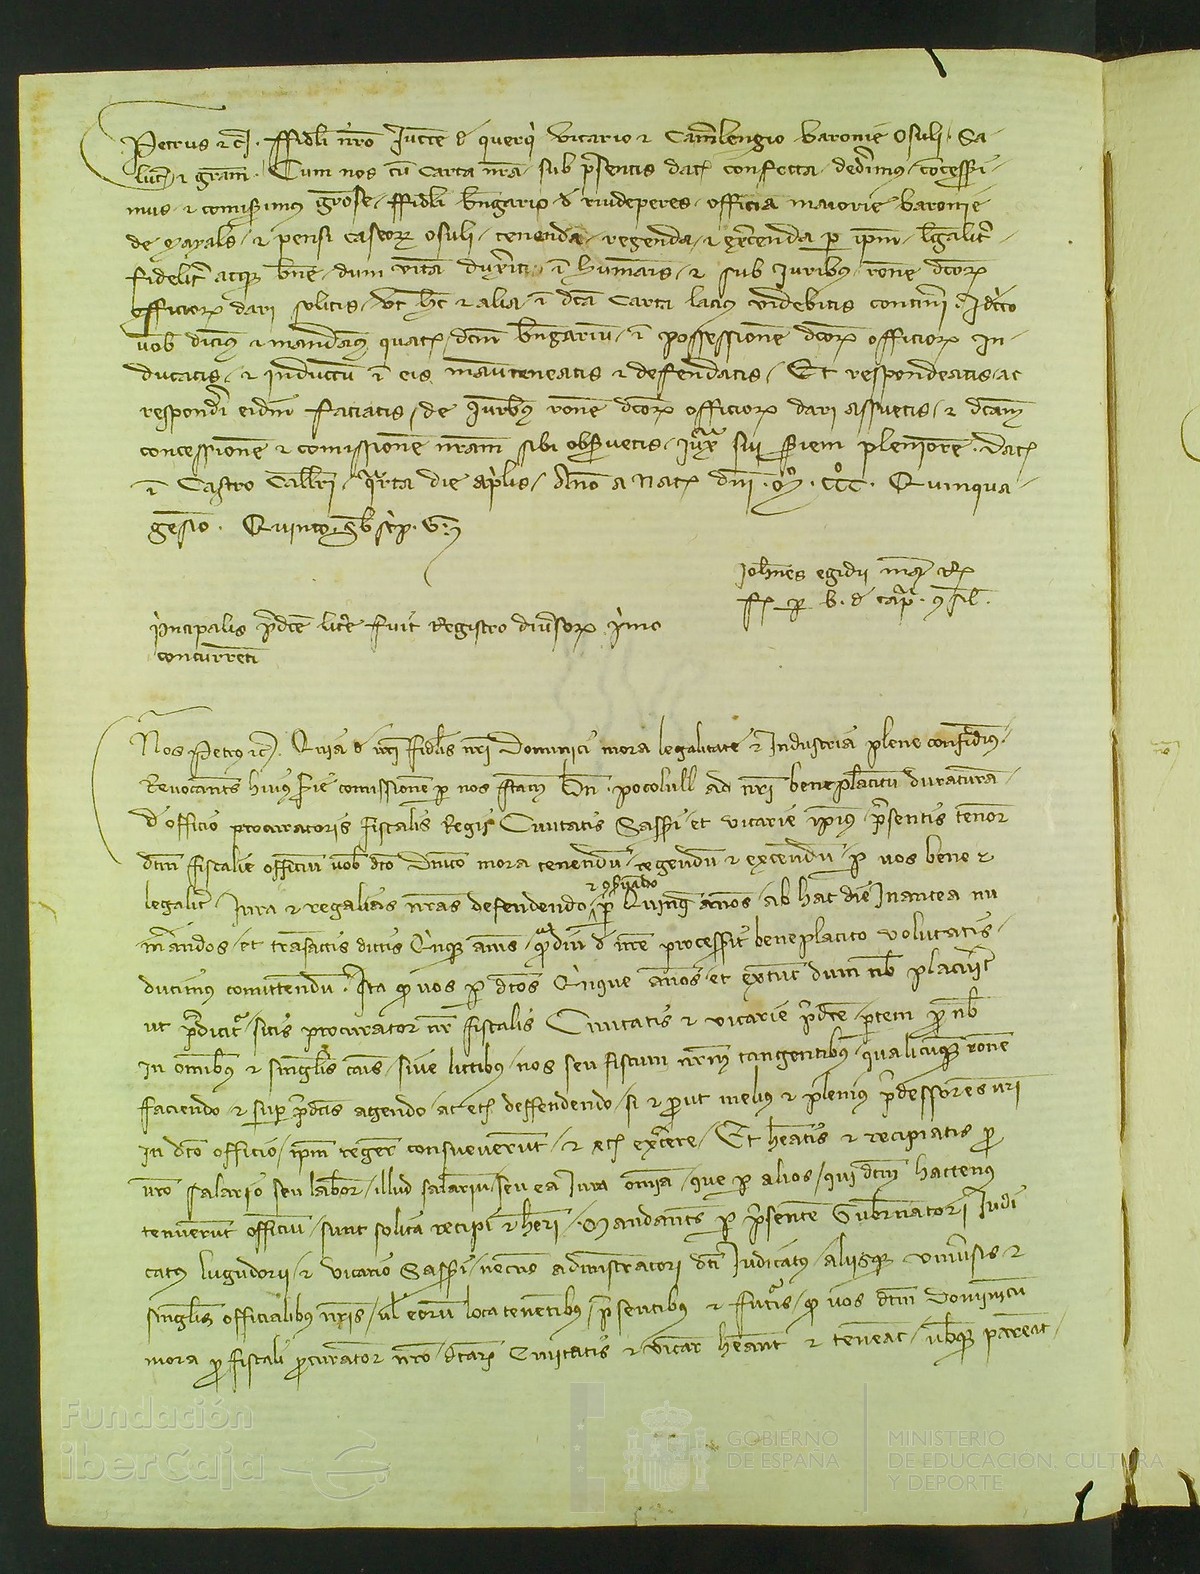 Petrus etc. ffideli nro de vicario et Camlengio baronie Osuli. Sa-
lutem et gram. Cum nos cum carta nra sub presentis dat confecta dederimus concesseri-
mus et comiserimus gratiose ffideli bngario de riudeperes officia maiorie baronie
de et pensi caseorum osuli tenenda regenda et exercenda per ipm legaliter
fideliter atque bene dum vitam duxerit in humanis et sub iuribus rone dcorum
officiorum dari solitis ut hec et alia in dca carta lacius videbitis contineri. Idcirco
vob dicimus et mandamus quatenus dcm bngarium in possessionem dcorum officiorum in-
ducatis et inductum in eis manuteneatis et defendatis. Et respondeatis ac
responderi eidem faciatis de iuribus rone dcorum officiorum dari assuetis et dcam
concessionem et comissionem nram sibi observetis iuxta sui seriem pleniorem. Dat
in Castro Callri quarta die aprilis anno a nat dni Mº CCCº Quinqua-
gesimo Quinto.
Iohnes egidii
per b. de
principalis predce litere fuit Registro diversorum primo
concurrenti
Nos Petrus etc. Quia de vri fidelis nri Dominici mora legalitate et industria plene confidimus.
Revocantes huius serie comissionem per nos fctam bn. pocolull ad nri beneplacitum duraturam
de officio procuratoris fiscalis Regii Civitatis Sasseri et vicarie ipsius presentis tenore
dcm fiscalie officium vob dco Dnico mora tenendum regendum et exercendum per vos bene et
et conservando
legaliter iura et regalias nras defendendo per Quinque annos ab hac die inantea nu
merandos et transactis dictis quinque annis quamdiu de nre processerit beneplacito volutatis
ducimus comittendum. Ita quod vos per dcos quinque annos et extunc dum nob placuerit
ut predicitur sitis procurator nr fiscalis Civitatis et vicarie predce partem pro nob
in omnibus et singulis causis sive litibus nos seu fiscum nrm tangentibus qualicunque rone
faciendo et super predcis agendo ac etiam deffendendo si et prout melius et plenius predessores vri
in dco officio ipm regere consueverunt et etiam exercere. Et heatis et recipiatis pro
vro salario seu labore illud salarium seu ea iura omnia que per alios qui dcm hactenus
tenuerunt officium sunt solita recipi et heri. Mandantes per presentem Gubernatori Iudi
catus lugudorii et vicario Sasseri necnon administratori dci Iudicatus aliisque universis et
singulis officialibus nris vel eorum locatenentibus presentibus et futuris quod vos dcm Dominicum
mora pro fiscali procuratore nro dcarum Civitatis et vicarie heant et teneant vobque pareant
Fundación
iberCaja
GOBIERNO
DE ESPAÑA
MINISTERIO
DE EDUCACIÓN, CULTURA
Y DEPORTE